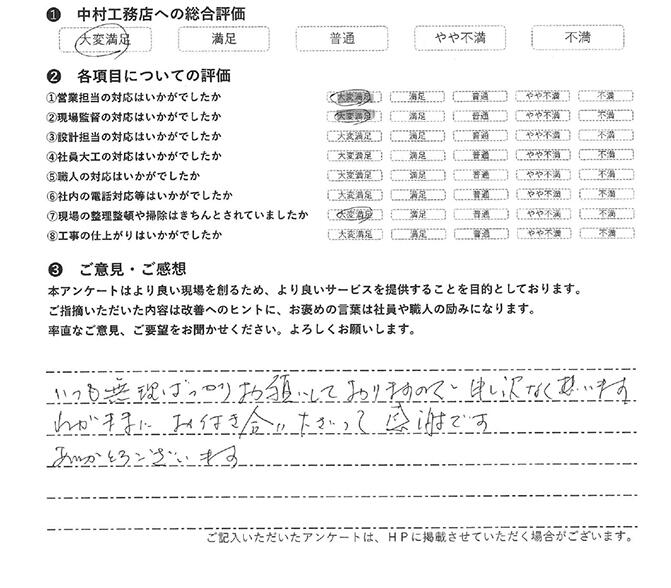 ❶ 中村工務店への総合評価
大変満足 満足 普通 やや不満 不満
❷ 各項目についての評価
①営業担当の対応はいかがでしたか 大変満足 満足 普通 やや不満 不満
②現場監督の対応はいかがでしたか 大変満足 満足 普通 やや不満 不満
③設計担当の対応はいかがでしたか 大変満足 満足 普通 やや不満 不満
④社員大工の対応はいかがでしたか 大変満足 満足 普通 やや不満 不満
⑤職人の対応はいかがでしたか 大変満足 満足 普通 やや不満 不満
⑥社内の電話対応等はいかがでしたか 大変満足 満足 普通 やや不満 不満
⑦現場の整理整頓や掃除はきちんとされていましたか 大変満足 満足 普通 やや不満 不満
⑧工事の仕上がりはいかがでしたか 大変満足 満足 普通 やや不満 不満
❸ ご意見・ご感想
本アンケートはより良い現場を創るため、より良いサービスを提供することを目的としております。
ご指摘いただいた内容は改善へのヒントに、お褒めの言葉は社員や職人の励みになります。
率直なご意見、ご要望をお聞かせください。よろしくお願いします。
いつも無理ばっかりお願いしておりますので、申し訳なく思います
わがままに お付き合い下さって 感謝です
ありがとうございます
ご記入いただいたアンケートは、ＨＰに掲載させていただく場合がございます。